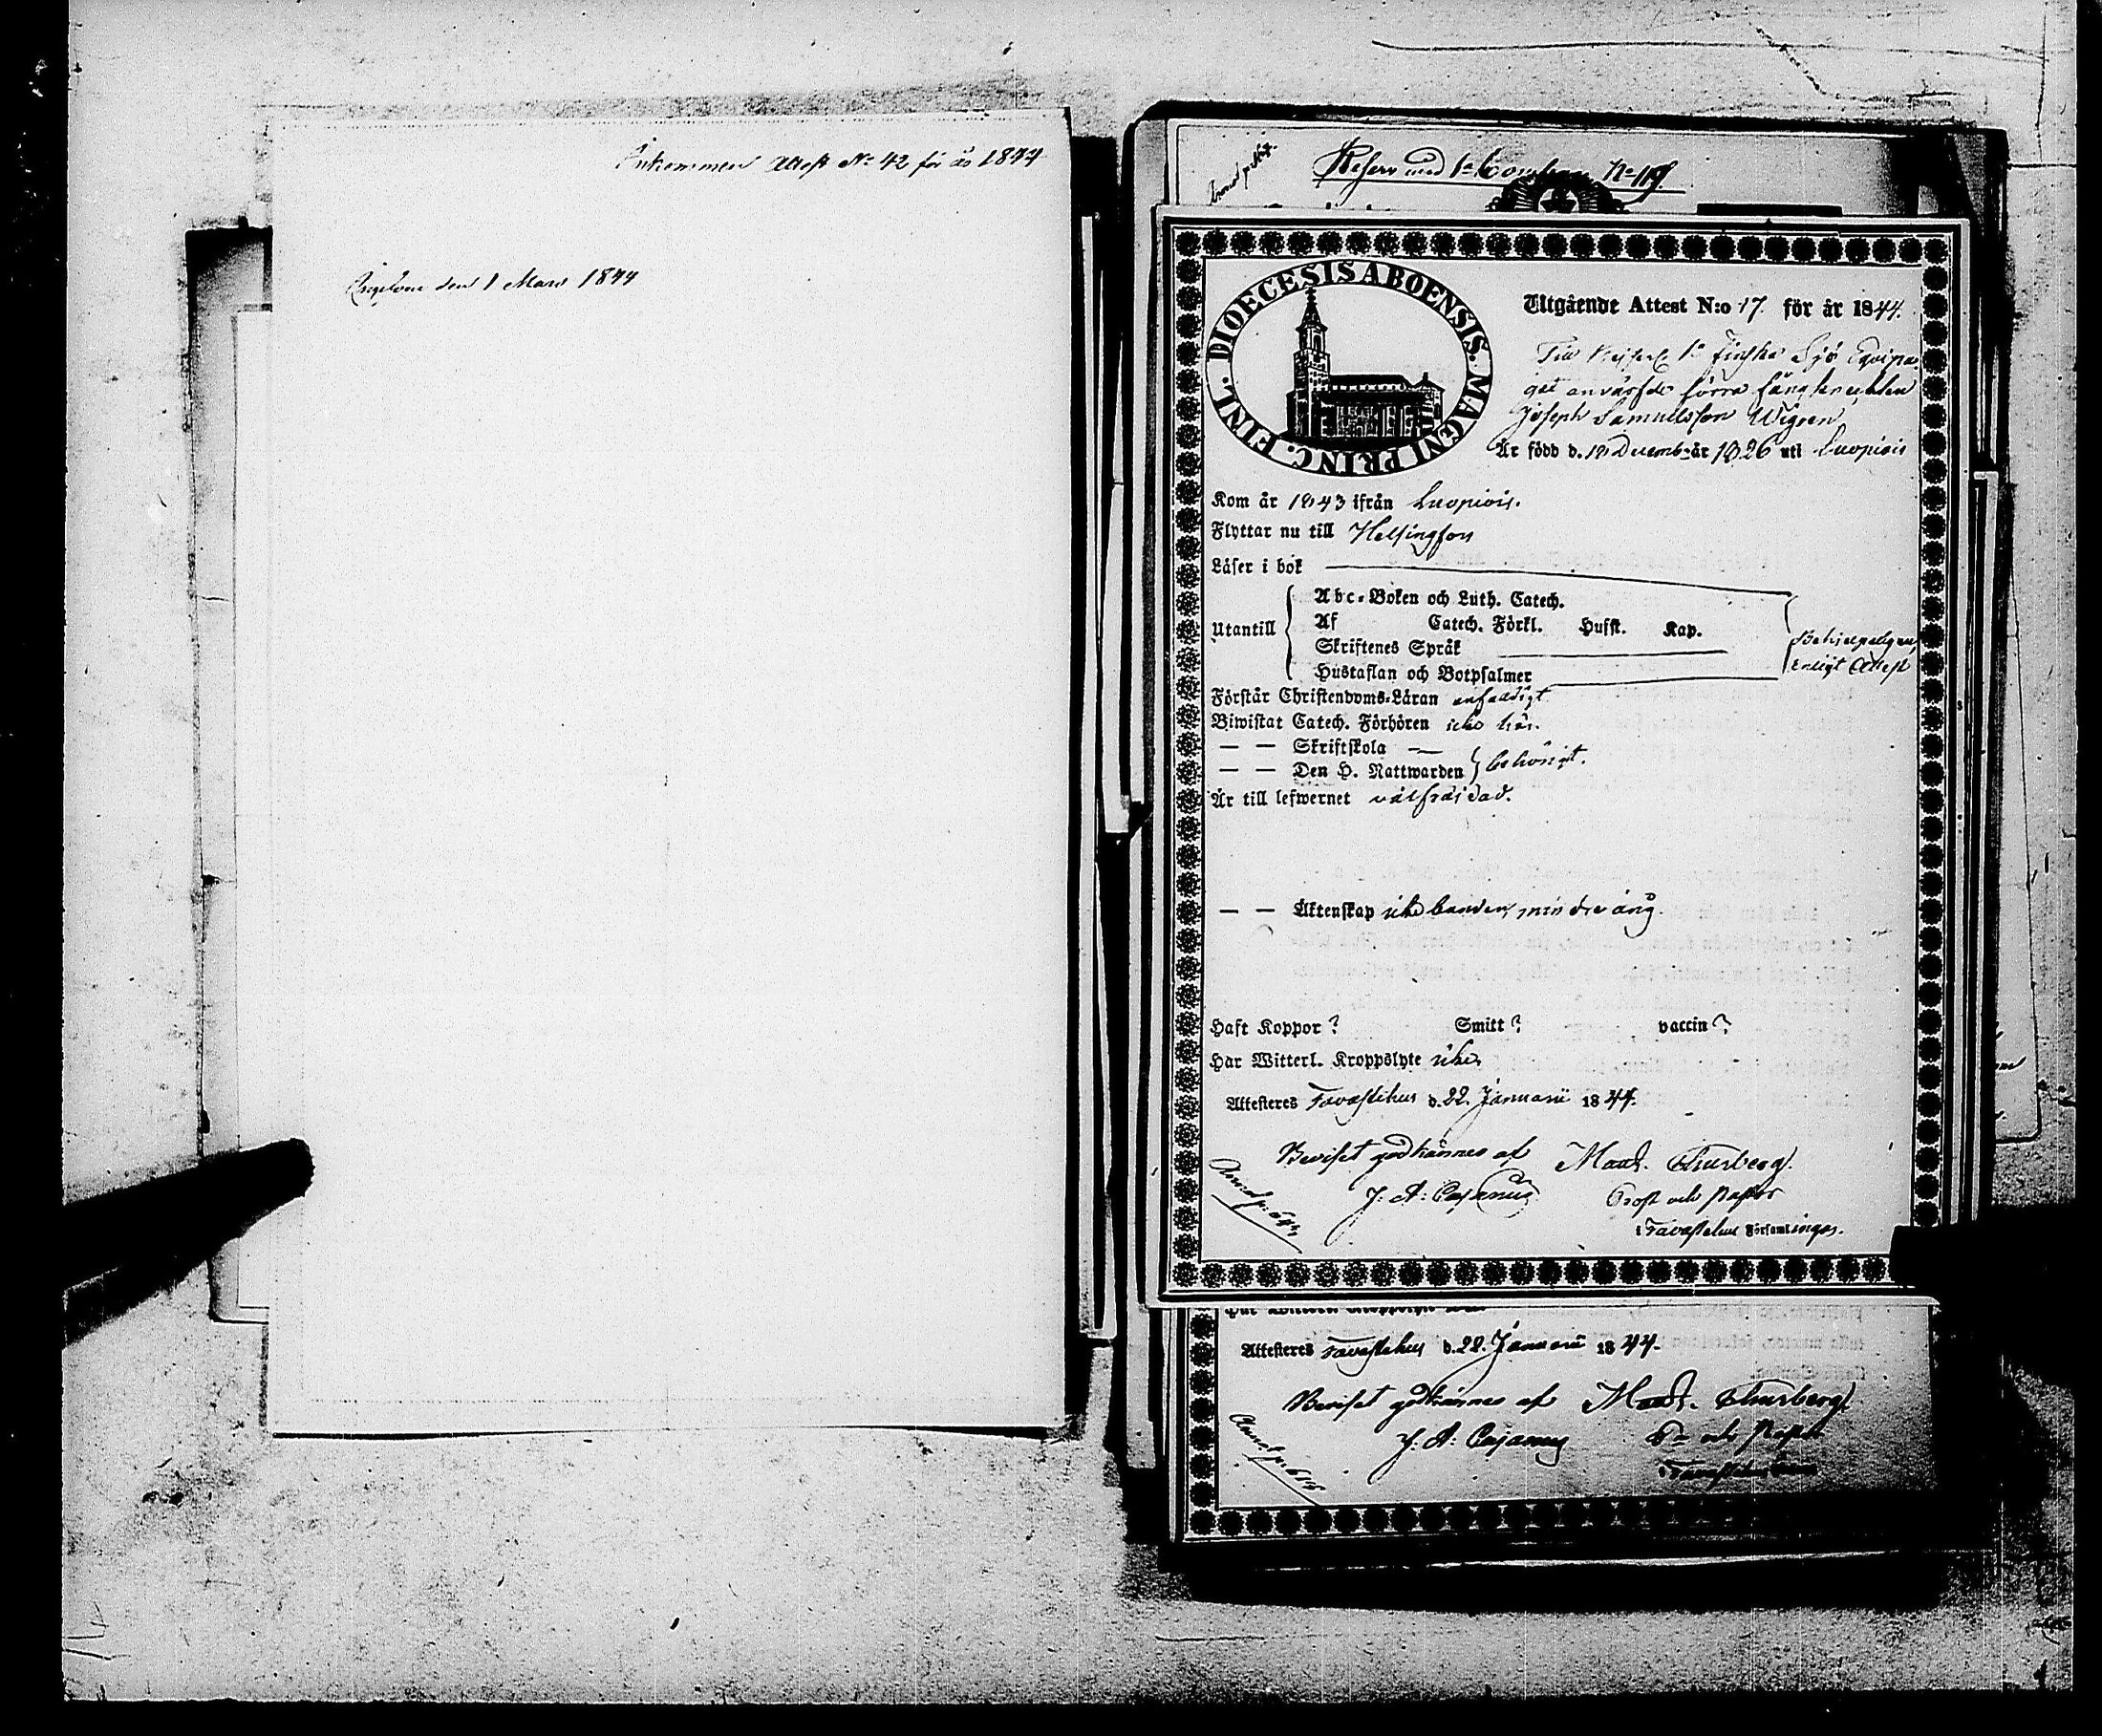 Inkommen Attest No 42 för år 1844
Ingifven den 1 Mars 1844
Reserv med 1a No 119
DIOECESIS ABOENSIS. MAGNI PRINC. FINL.
Utgående Attest N:o 17. för år 1844.
Till Kejserl. 1a Finska Sjö Equipa-
get anvärfde förra fångknekten
Joseph Samuelsson Wigren
Är född d. 18 Decemb: år 1826 uti Luopiois
Kom år 1843 ifrån Luopiois.
Flyttar nu till Helsingfors
Läser i bok
Utantill
Abc-Boken och Luth. Catech.
Af Catech. Förkl. Husst. Kap.
Skriftenes Språk
Hustaflan och Botpsalmer
enligt Attest
Förstår Christendoms-Läran enfaldigt
Biwistat Catech. Förhören icke här.
— — Skriftskola —
— — Den H. Nattwarden } behörigt.
Är till lefwernet välfräjdad.
— — Äktenskap icke bunden, minderårig
Haft Koppor? Smitt? vaccin?
Har Witterl. Kroppslyte icke
Attesteres Tavastehus d. 22. Januarii 1844.
Beviset godkännes af Math. Thurberg.
J: A: Cajanus Prost och Pastor
i Tavastehus Församlingar.
Attesteres Tavastehus d. 22. Januarii 1844.
Beviset godkännes af Math. Thurberg
J: A: Cajanus Pr och Pastor